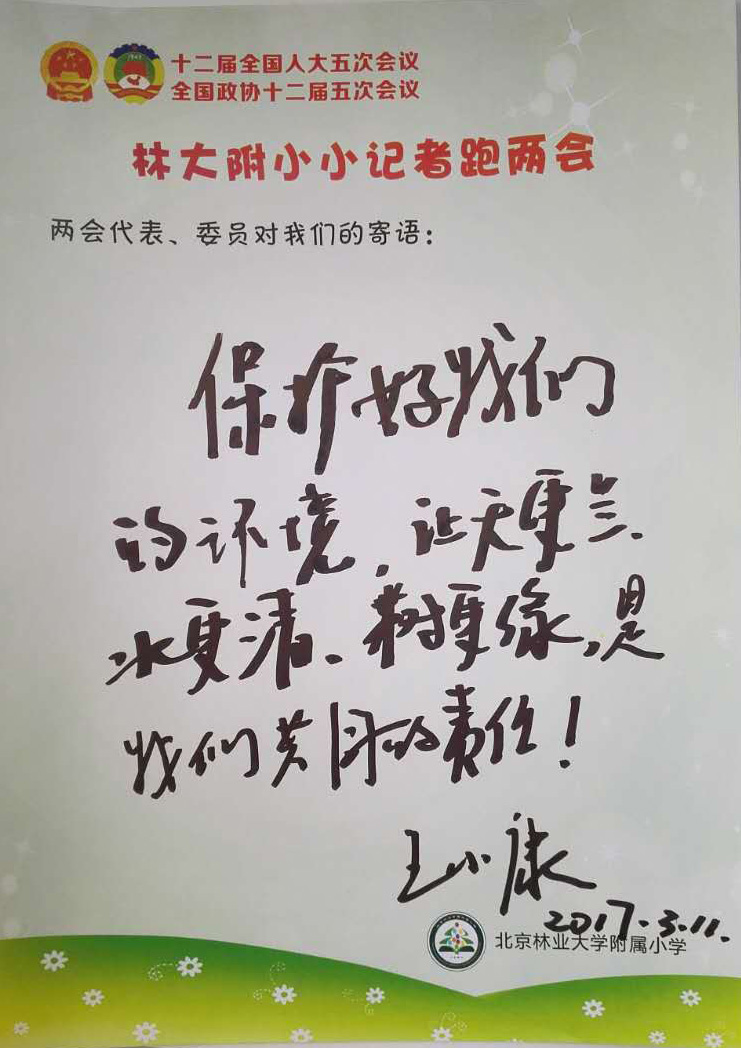 十二届全国人大五次会议
全国政协十二届五次会议
林大附小小记者跑两会
两会代表、委员对我们的寄语：
保护好我们
的环境，让天更兰、
水更清、树更绿，是
我们共同的责任！
王小康
2017.3.11.
北京林业大学附属小学